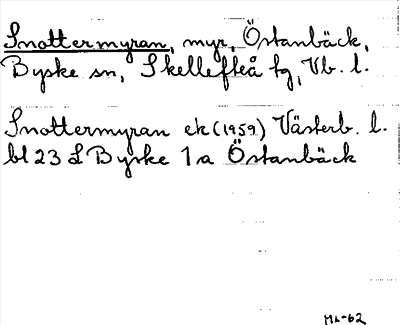 Snottermyran, myr, Östanbäck,
Byske sn, Skellefteå tg, Vb. l.
Snottermyran ek (1959) Västerb. l.
bl 23 L Byske 1a Östanbäck